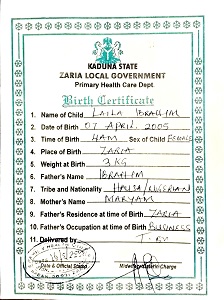 KADUNA STATE
ZARIA LOCAL GOVERNMENT
Primary Health Care Dept.
Birth Certificate
1. Name of Child LAILA IBRAHIM
2. Date of Birth 07 APRIL, 2005
3. Time of Birth 4AM Sex of Child FEMALE
4. Place of Birth ZARIA
5. Weight at Birth 3 KG
6. Father's Name IBRAHIM
7. Tribe and Nationality HAUSA/NIGERIAN
8. Mother's Name MARYAM
9. Father's Residence at time of Birth ZARIA
10. Father's Occupation at time of Birth BUSINESS
11. Delivered by
Date & Official Stamp Midwife in Charge